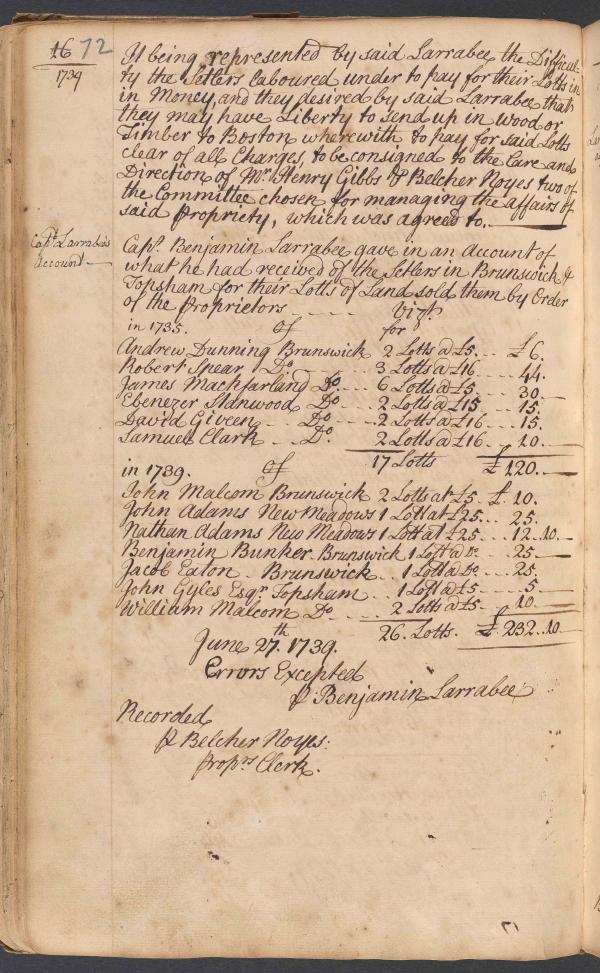 16 72
1739
It being represented by said Larrabee the Difficul-
ty the Setlers laboured under to pay for their Lotts in
in Money, and they desired by said Larrabee that
they may have Liberty to send up in Wood or
Timber to Boston wherewith to pay for said Lotts
clear of all Charges, to be consigned to the Care and
Direction of Mr Henry Gibbs & Belcher Noyes two of
the Committee chosen for managing the affairs of
said Propriety, which was agreed to.
Capt Larrabee's
Account
Capt. Benjamin Larrabee gave in an Account of
what he had received of the Setlers in Brunswick &
Topsham for their Lotts of Land sold them by Order
of the Proprietors - - - - Vizt.
in 1735. Of for
Andrew Dunning Brunswick 2 Lotts @ £5 - - £6.
Robert Spear Do - - 3 Lotts @ £16 - - - 44.
James Mackfarland Do - - 6 Lotts @ £5 - - - 30
Ebenezer Stanwood Do - - 2 Lotts @ £15 - - 15.
David Giveen - - Do - - - 2 Lotts @ £16 - - - 15.
Samuel Clark - - Do. 2 Lotts @ £16 - - 10.
17 Lotts £120.
in 1739. Of
John Malcom Brunswick 2 Lotts at £5 - £. 10.
John Adams New Meadows 1 Lott at £25 - - 25.
Nathan Adams New Meadows 1 Lott at £25 - - - 12..10
Benjamin Bunker Brunswick 1 Lott @ Do - - 25
Jacob Eaton - Brunswick . . 1 Lott @ Do - - - 25.
John Gyles Esqr. Topsham . . 1 Lott @ £5 - - - 5
William Malcom Do - - - 2 Lotts @ £5 - - 10
26. Lotts. £232..10
June 27th. 1739.
Errors Excepted
P Benjamin Larrabee
Recorded
P Belcher Noyes:
Proprs Clerk.